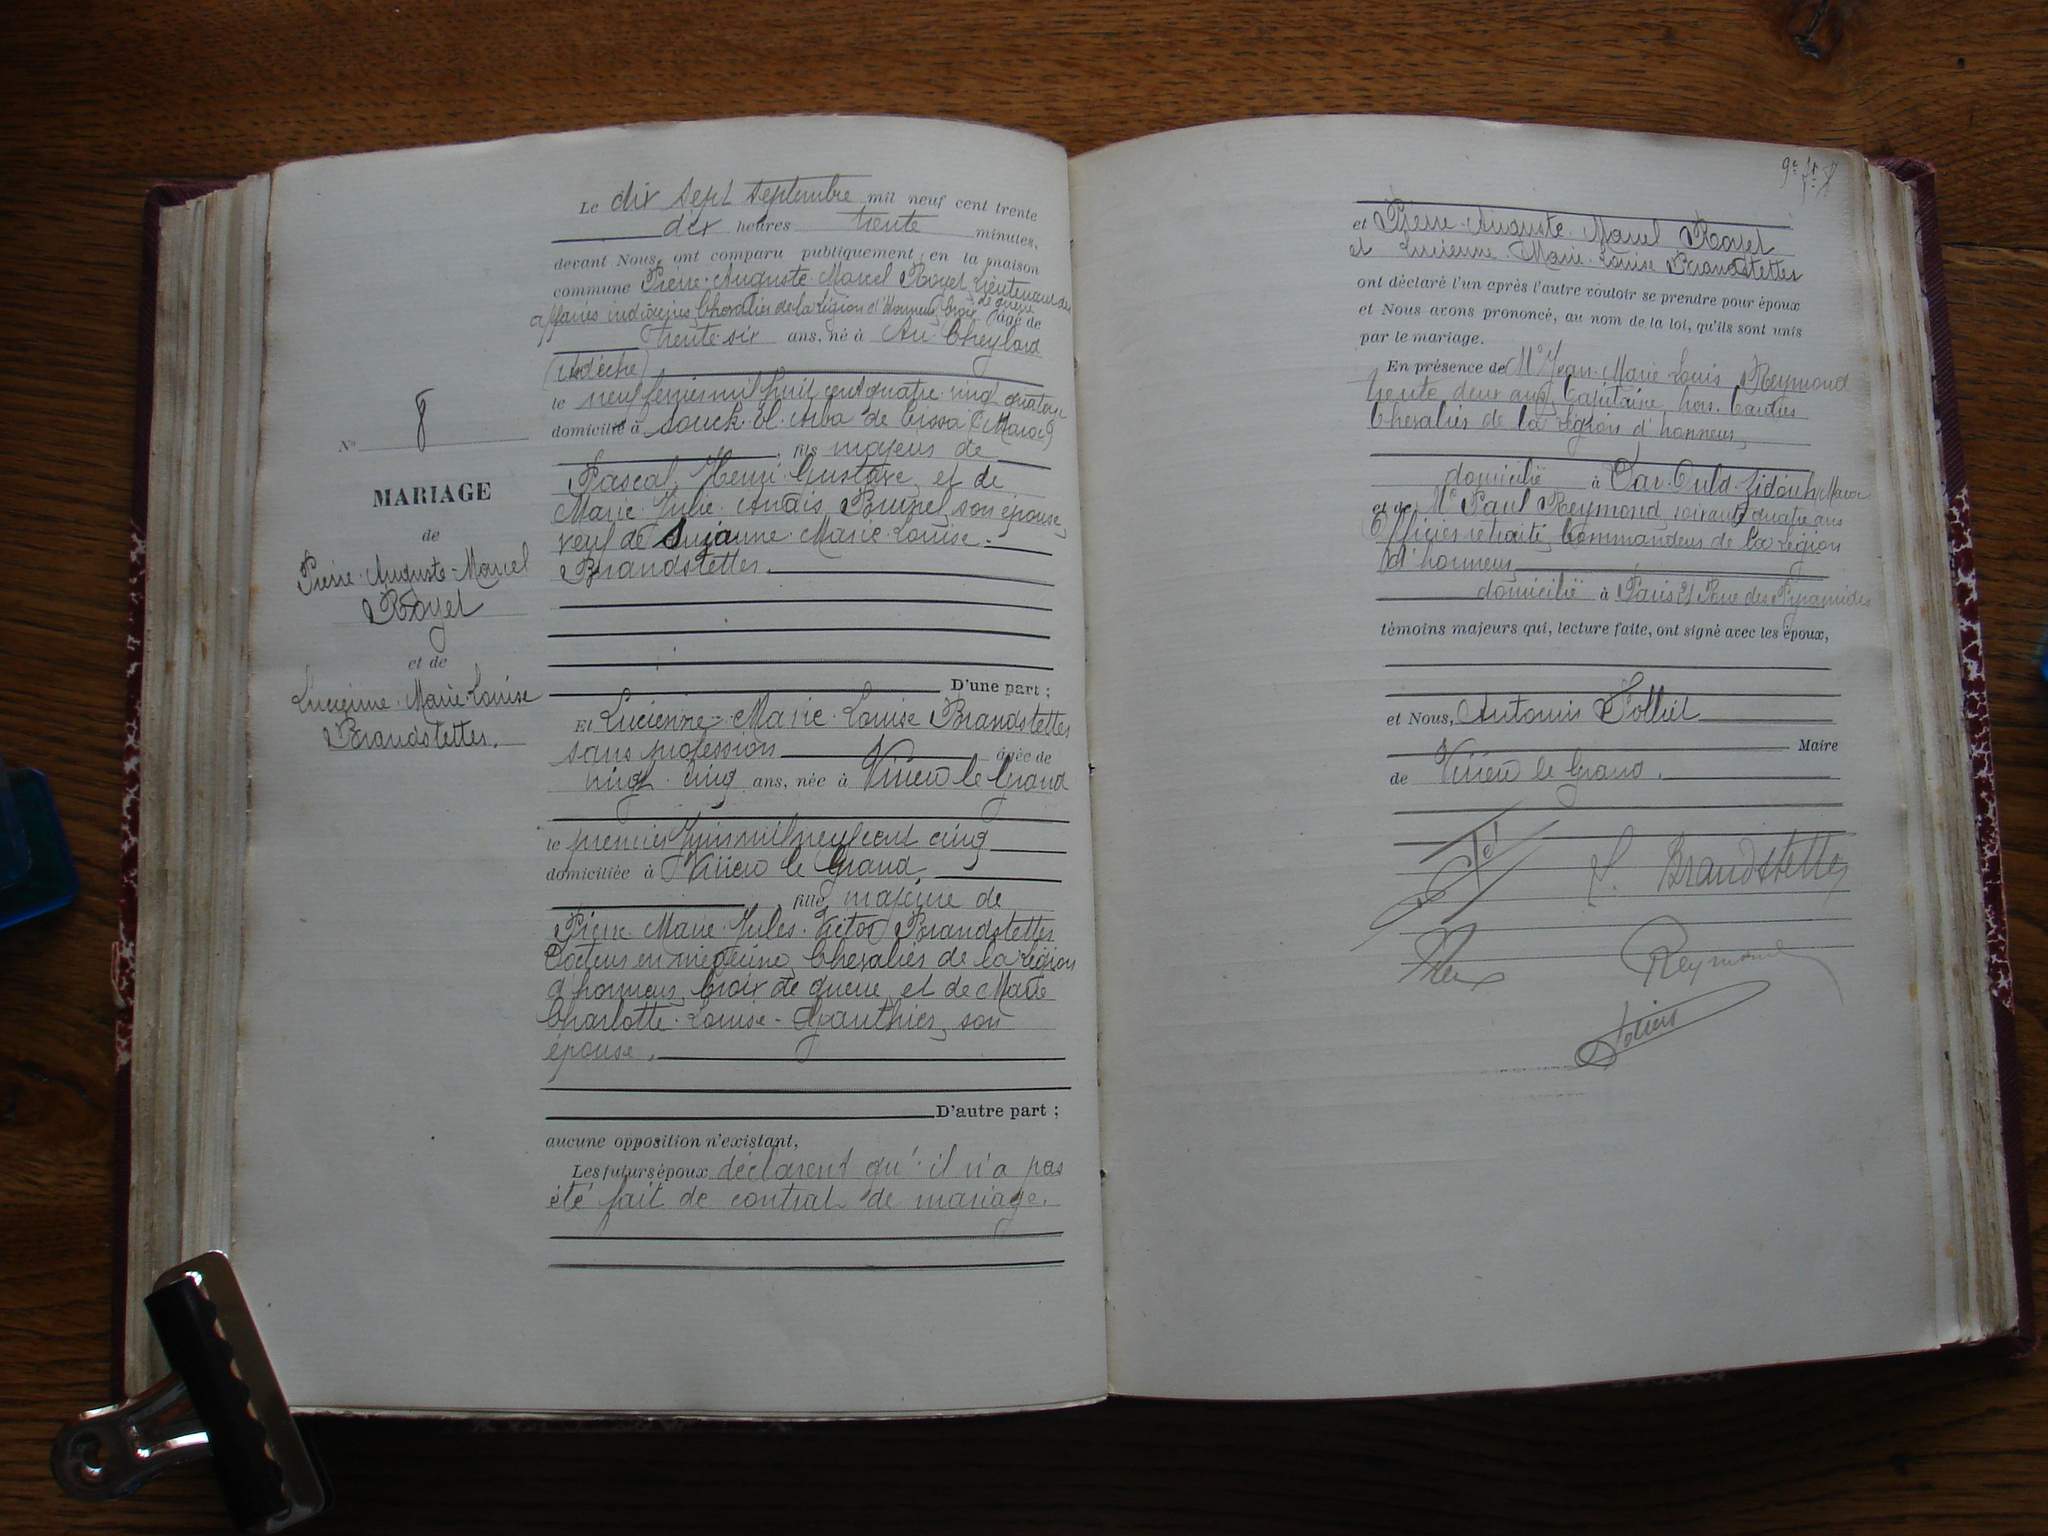 Le dix sept septembre mil neuf cent trente
dix heures trente minutes,
devant Nous, ont comparu publiquement en la maison
commune Pierre-Auguste-Marcel Royet, Lieutenant des
affaires indigènes, Chevalier de la Légion d'Honneur, Croix de guerre âgé de
trente-six ans, né à Au Cheylard
(Ardèche)
le neuf février mil huit cent quatre-vingt quatorze
domicilié à Souck-El-Arba de Tissa (Maroc)
, fils majeur de
Pascal, Henri-Gustave, et de
Marie-Julie-Anaïs Brunel, son épouse,
veuf de Suzanne-Marie-Louise-
Brandstetter.
D'une part ;
Et Lucienne-Marie-Louise Brandstetter
sans profession âgée de
vingt-cinq ans, née à Virieu le Grand
le premier Juin mil neuf cent cinq
domiciliée à Virieu le Grand
, fille majeure de
Pierre-Marie-Jules-Victor Brandstetter
Docteur en médecine, Chevalier de la Légion
d'honneur, Croix de guerre, et de Marie
Charlotte-Louise-Gauthier, son
épouse.
D'autre part ;
aucune opposition n'existant,
Les futurs époux déclarent qu'il n'a pas
été fait de contrat de mariage.
No 8
MARIAGE
de
Pierre-Auguste-Marcel
Royet
et de
Lucienne-Marie-Louise
Brandstetter.
et Pierre-Auguste-Marcel Royet
et Lucienne-Marie-Louise Brandstetter
ont déclaré l'un après l'autre vouloir se prendre pour époux
et Nous avons prononcé, au nom de la loi, qu'ils sont unis
par le mariage.
En présence de Mr Jean-Marie-Louis Reymond
trente deux ans, Capitaine hors-Cadres
Chevalier de la Légion d'honneur,
domicilié à Dar-Ould-Zidouh, Maroc
et de Mr Paul Reymond, soixante quatre ans
Officier retraité, Commandeur de la Légion
d'honneur
domicilié à Paris 21 Rue des Pyramides
témoins majeurs qui, lecture faite, ont signé avec les époux,
et Nous, Antonin Tolliet
Maire
de Virieu le Grand.
L. Brandstetter
Reymond